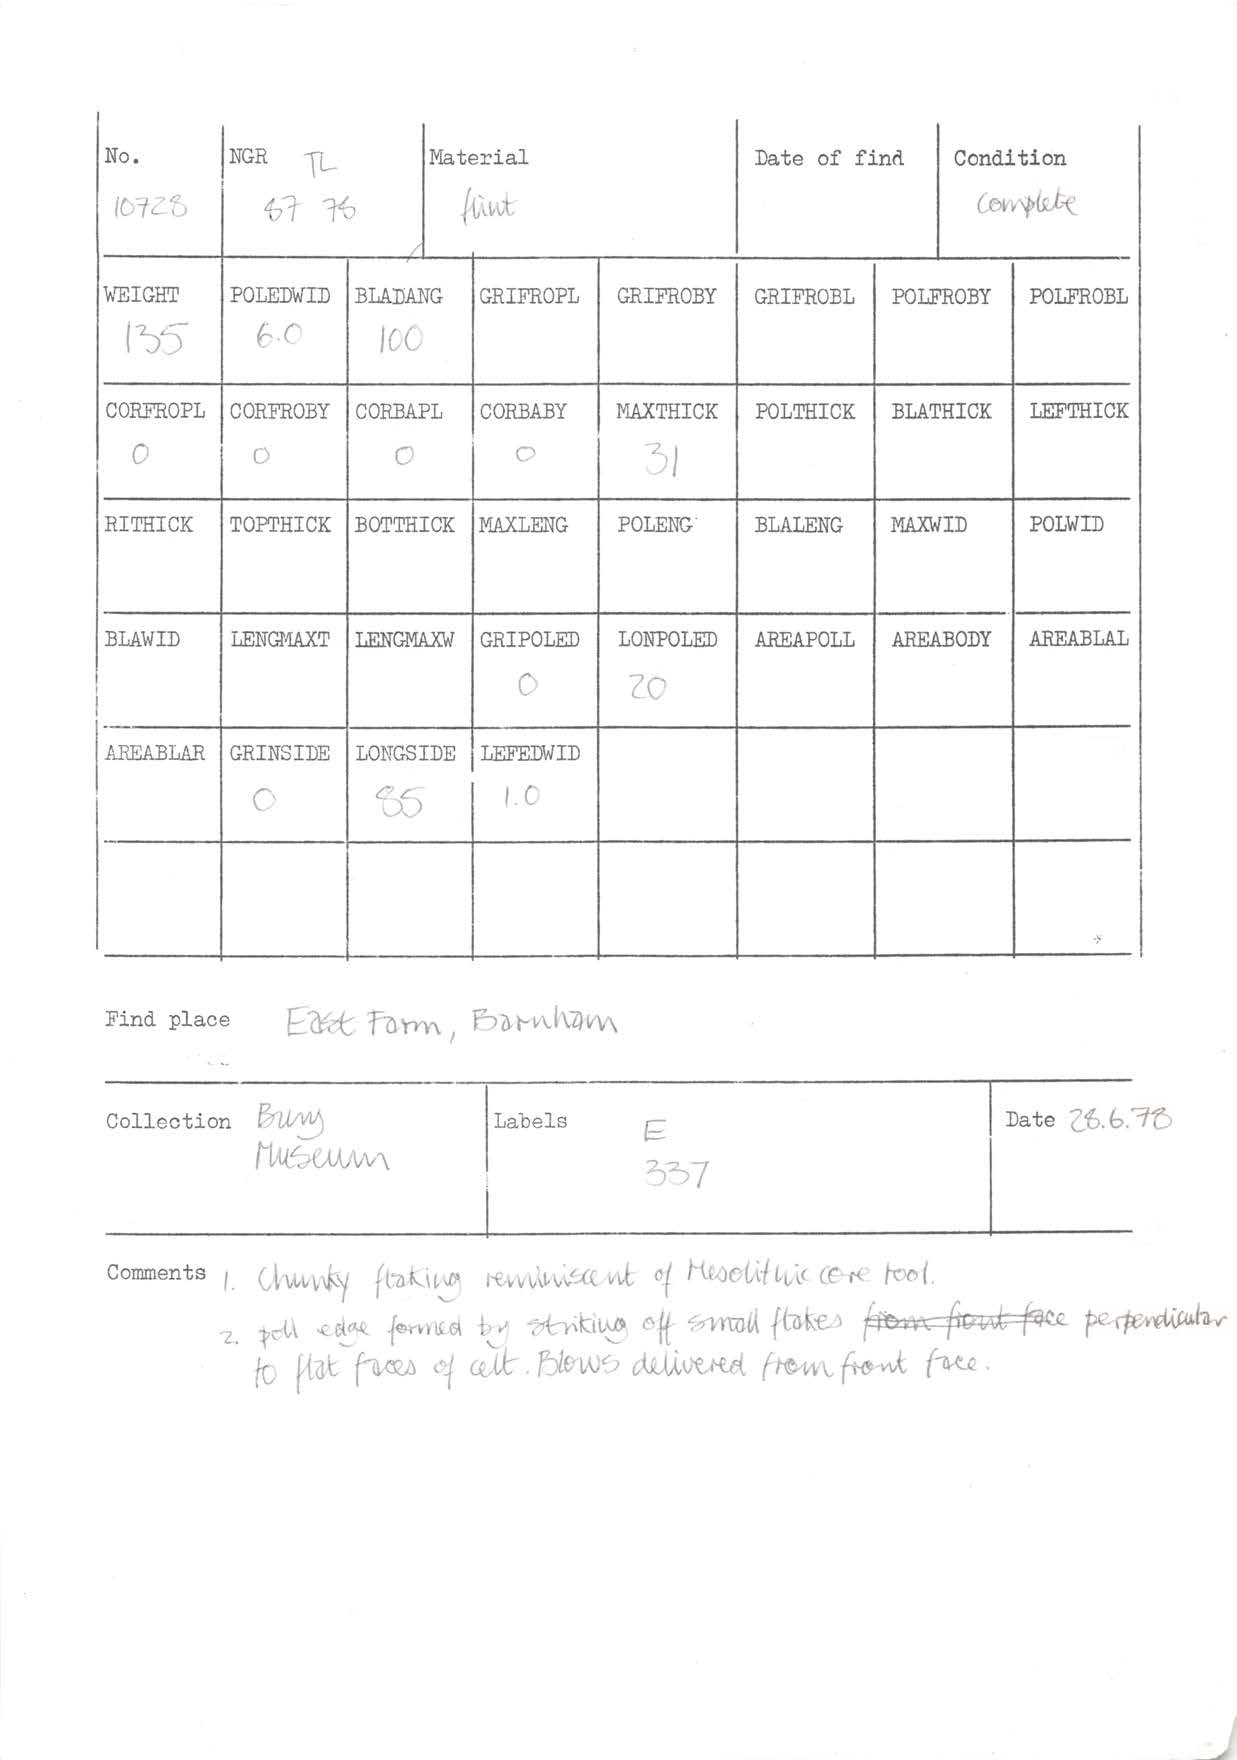 No. NGR TL Material Date of find Condition
10728 87 78 flint complete
WEIGHT POLEDWID BLADANG GRIFROPL GRIFROBY GRIFROBL POLFROBY POLFROBL
135 6.0 100
CORFROPL CORFROBY CORBAPL CORBABY MAXTHICK POLTHICK BLATHICK LEFTHICK
0 0 0 0 31
RITHICK TOPTHICK BOTTHICK MAXLENG POLENG BLALENG MAXWID POLWID
BLAWID LENGMAXT LENGMAXW GRIPOLED LONPOLED AREAPOLL AREABODY AREABLAL
0 20
AREABLAR GRINSIDE LONGSIDE LEFEDWID
0 85 1.0
Find place East Farm, Barnham
Collection Bury Labels E Date 28.6.78
Museum 337
Comments 1. Chunky flaking reminiscent of Mesolithic core tool.
2. poll edge formed by striking off small flakes from front face perpendicular
to flat faces of celt. Blows delivered from front face.